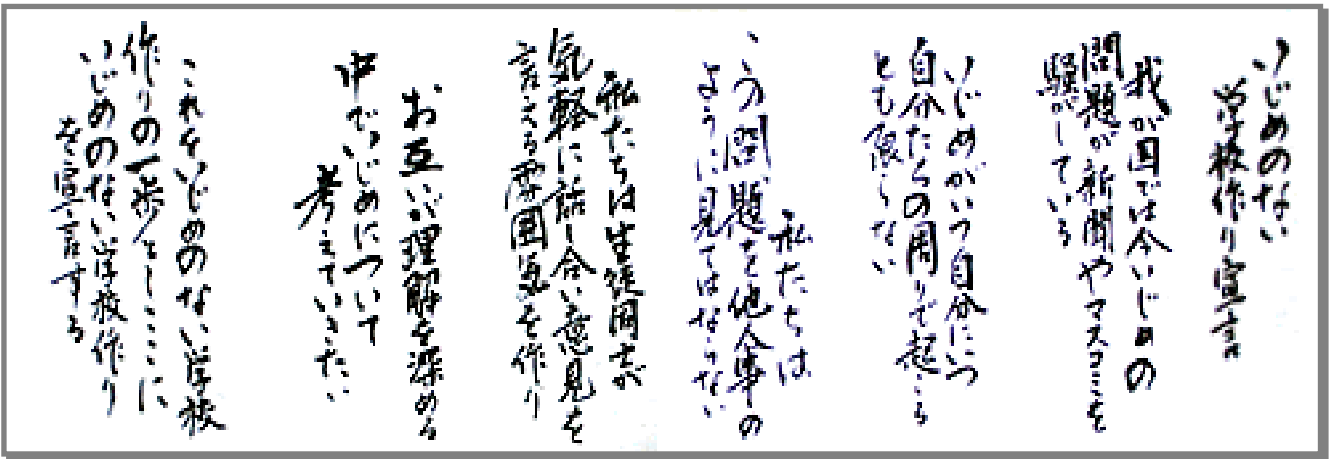 いじめのない
学校作り宣言
我が国では今いじめの
問題が新聞やマスコミを
騒がしている
いじめがいつ自分にいつ
自分たちの周りで起こら
とも限らない
私たちは
こう問題を他人事の
ように見てはならない
私たちは生徒同士が
気軽に話し合い意見を
言える雰囲気を作り
お互いが理解を深める
中でいじめについて
考えていきたい
これをいじめのない学校
作りの一歩としここに
いじめのない学校作り
を宣言する